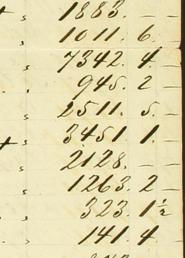 1883. –
" 1011. 6.
" 7342. 4
" 945. 2
" 2511. 5.
" 3451 1.
" 2128. –
" 1263. 2
" 323. 1½
" 141. 4